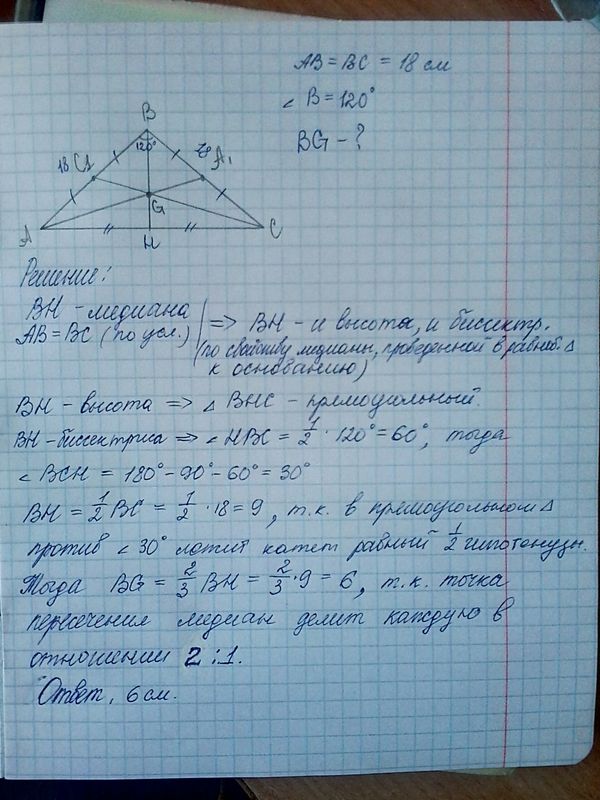 AB = BC = 18 см
∠ B = 120°
BG - ?
B
120°
18 C1
18 A₁
G
A
H
C
Решение:
BH - медиана
AB = BC (по усл.) | => BH - и высота, и биссектр.
(по свойству медианы, проведенной в равноб. △
к основанию)
BH - высота => △ BHC - прямоугольный.
BH - биссектриса => ∠ HBC = 1/2 · 120° = 60°, тогда
∠ BCH = 180° - 90° - 60° = 30°
BH = 1/2 BC = 1/2 · 18 = 9, т.к. в прямоугольном △
против ∠ 30° лежит катет равный 1/2 гипотенузы.
Тогда BG = 2/3 BH = 2/3 · 9 = 6, т.к. точка
пересечения медиан делит каждую в
отношении 2:1.
Ответ, 6 см.